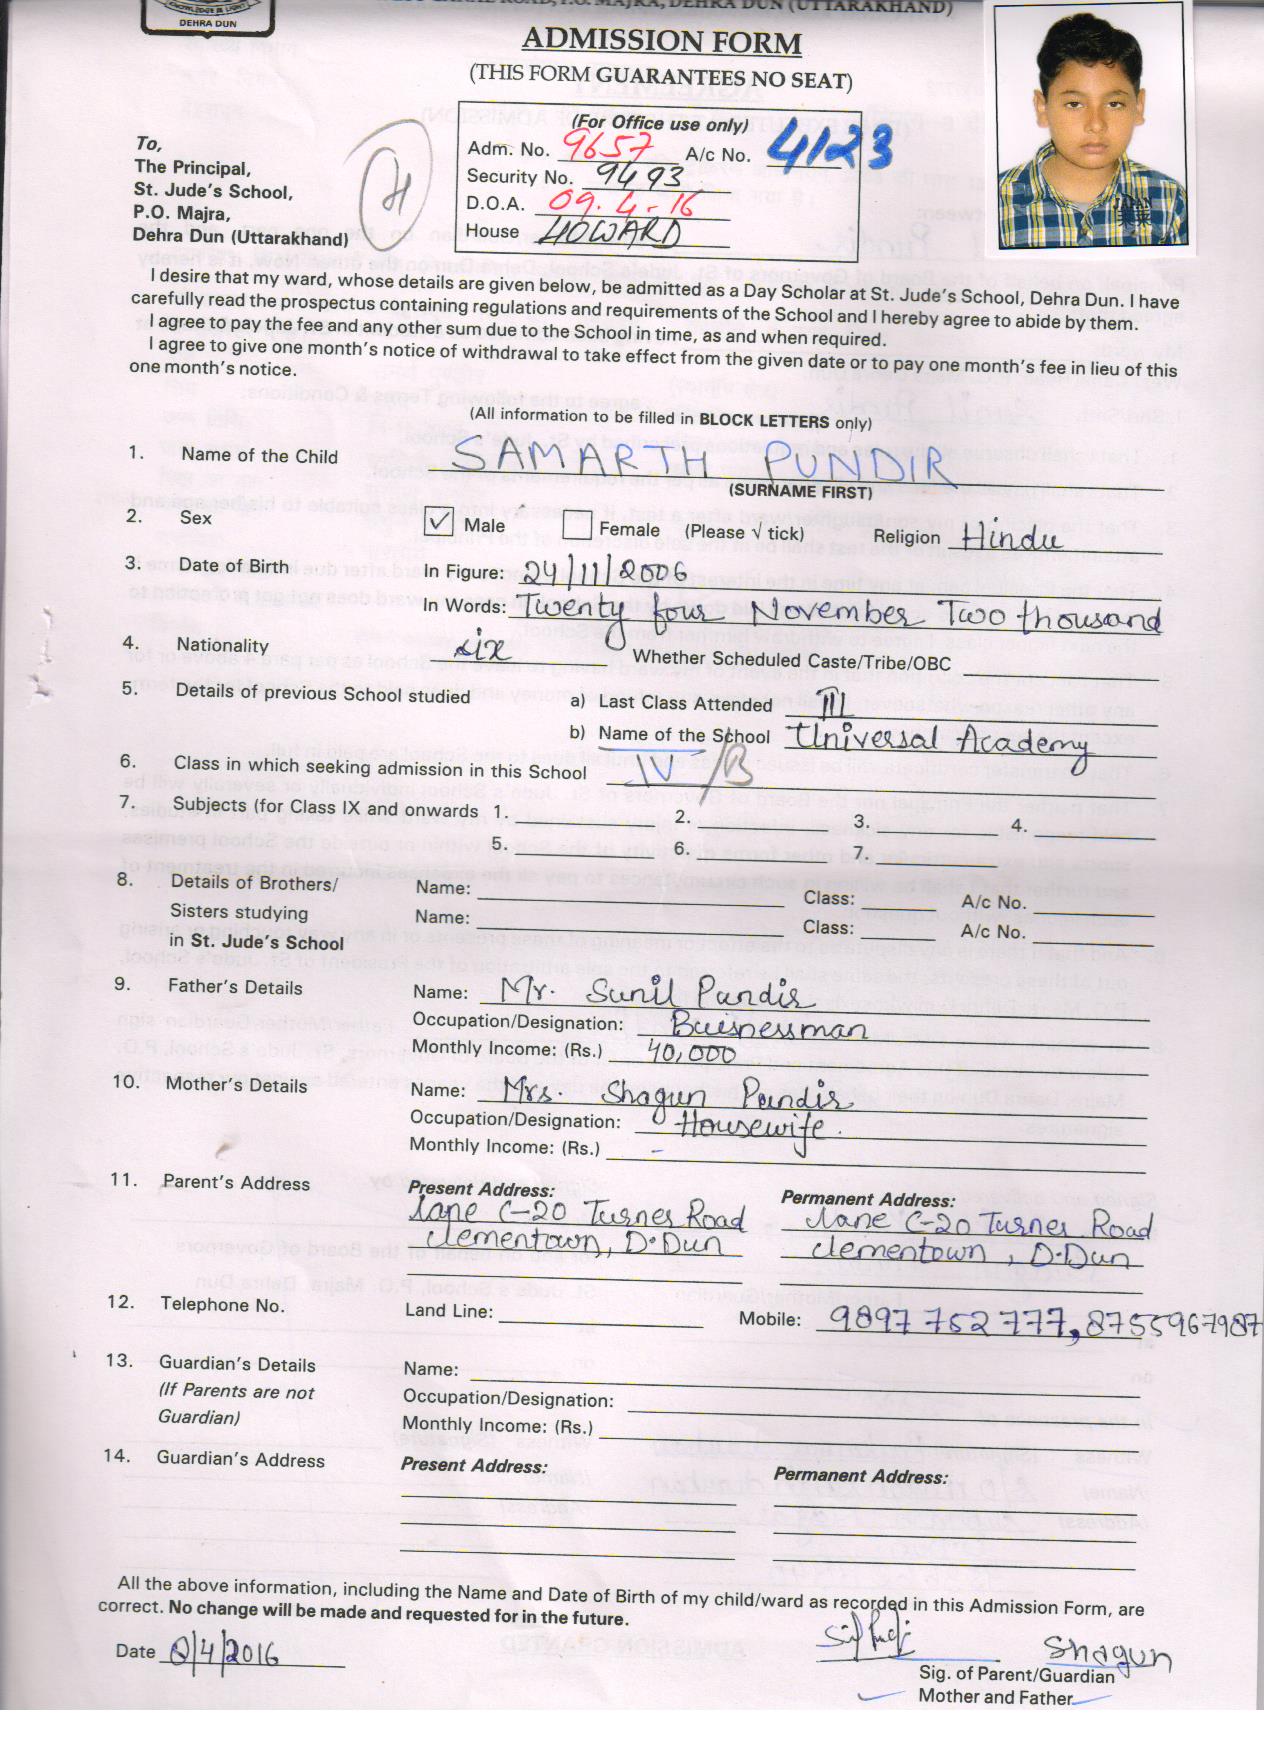 DEHRA DUN
ROAD, P.O. MAJRA, DEHRA DUN (UTTARAKHAND)
ADMISSION FORM
(THIS FORM GUARANTEES NO SEAT)
(For Office use only)
Adm. No. 9657 A/c No. 4123
Security No. 9493
D.O.A. 09.4-16
House HOWARD
H
To,
The Principal,
St. Jude's School,
P.O. Majra,
Dehra Dun (Uttarakhand)
JAPAN
I desire that my ward, whose details are given below, be admitted as a Day Scholar at St. Jude's School, Dehra Dun. I have
carefully read the prospectus containing regulations and requirements of the School and I hereby agree to abide by them.
I agree to pay the fee and any other sum due to the School in time, as and when required.
I agree to give one month's notice of withdrawal to take effect from the given date or to pay one month's fee in lieu of this
one month's notice.
(All information to be filled in BLOCK LETTERS only)
1. Name of the Child SAMARTH PUNDIR
(SURNAME FIRST)
2. Sex ✓ Male Female (Please √ tick) Religion Hindu
3. Date of Birth In Figure: 24/11/2006
In Words: Twenty four November Two thousand
4. Nationality six Whether Scheduled Caste/Tribe/OBC
5. Details of previous School studied a) Last Class Attended III
b) Name of the School Universal Academy
6. Class in which seeking admission in this School IV/B
7. Subjects (for Class IX and onwards 1. 2. 3. 4.
5. 6. 7.
8. Details of Brothers/ Name: Class: A/c No.
Sisters studying Name: Class: A/c No.
in St. Jude's School
9. Father's Details Name: Mr. Sunil Pundir
Occupation/Designation: Buisnessman
Monthly Income: (Rs.) 40,000
10. Mother's Details Name: Mrs. Shagun Pundir
Occupation/Designation: Housewife.
Monthly Income: (Rs.) -
11. Parent's Address Present Address: Permanent Address:
Lane C-20 Turner Road Lane C-20 Turner Road
Clementown, D.Dun Clementown, D.Dun
12. Telephone No. Land Line: Mobile: 9897752777, 8755967987
13. Guardian's Details Name:
(If Parents are not Occupation/Designation:
Guardian) Monthly Income: (Rs.)
14. Guardian's Address Present Address: Permanent Address:
All the above information, including the Name and Date of Birth of my child/ward as recorded in this Admission Form, are
correct. No change will be made and requested for in the future.
Date 8/4/2016 Shagun
Sig. of Parent/Guardian
Mother and Father